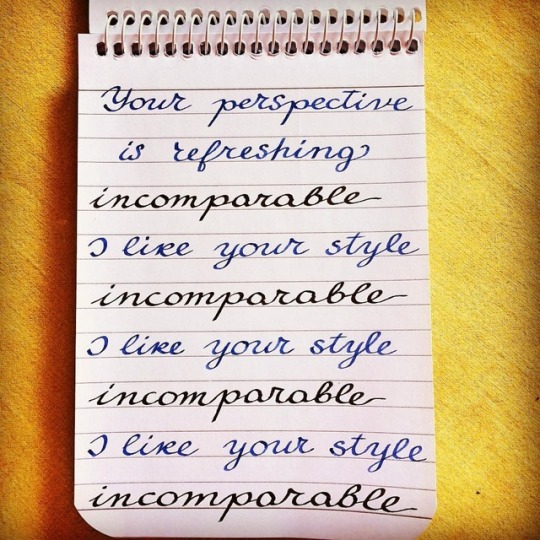 Your perspective
is refreshing
incomparable
I like your style
incomparable
I like your style
incomparable
I like your style
incomparable